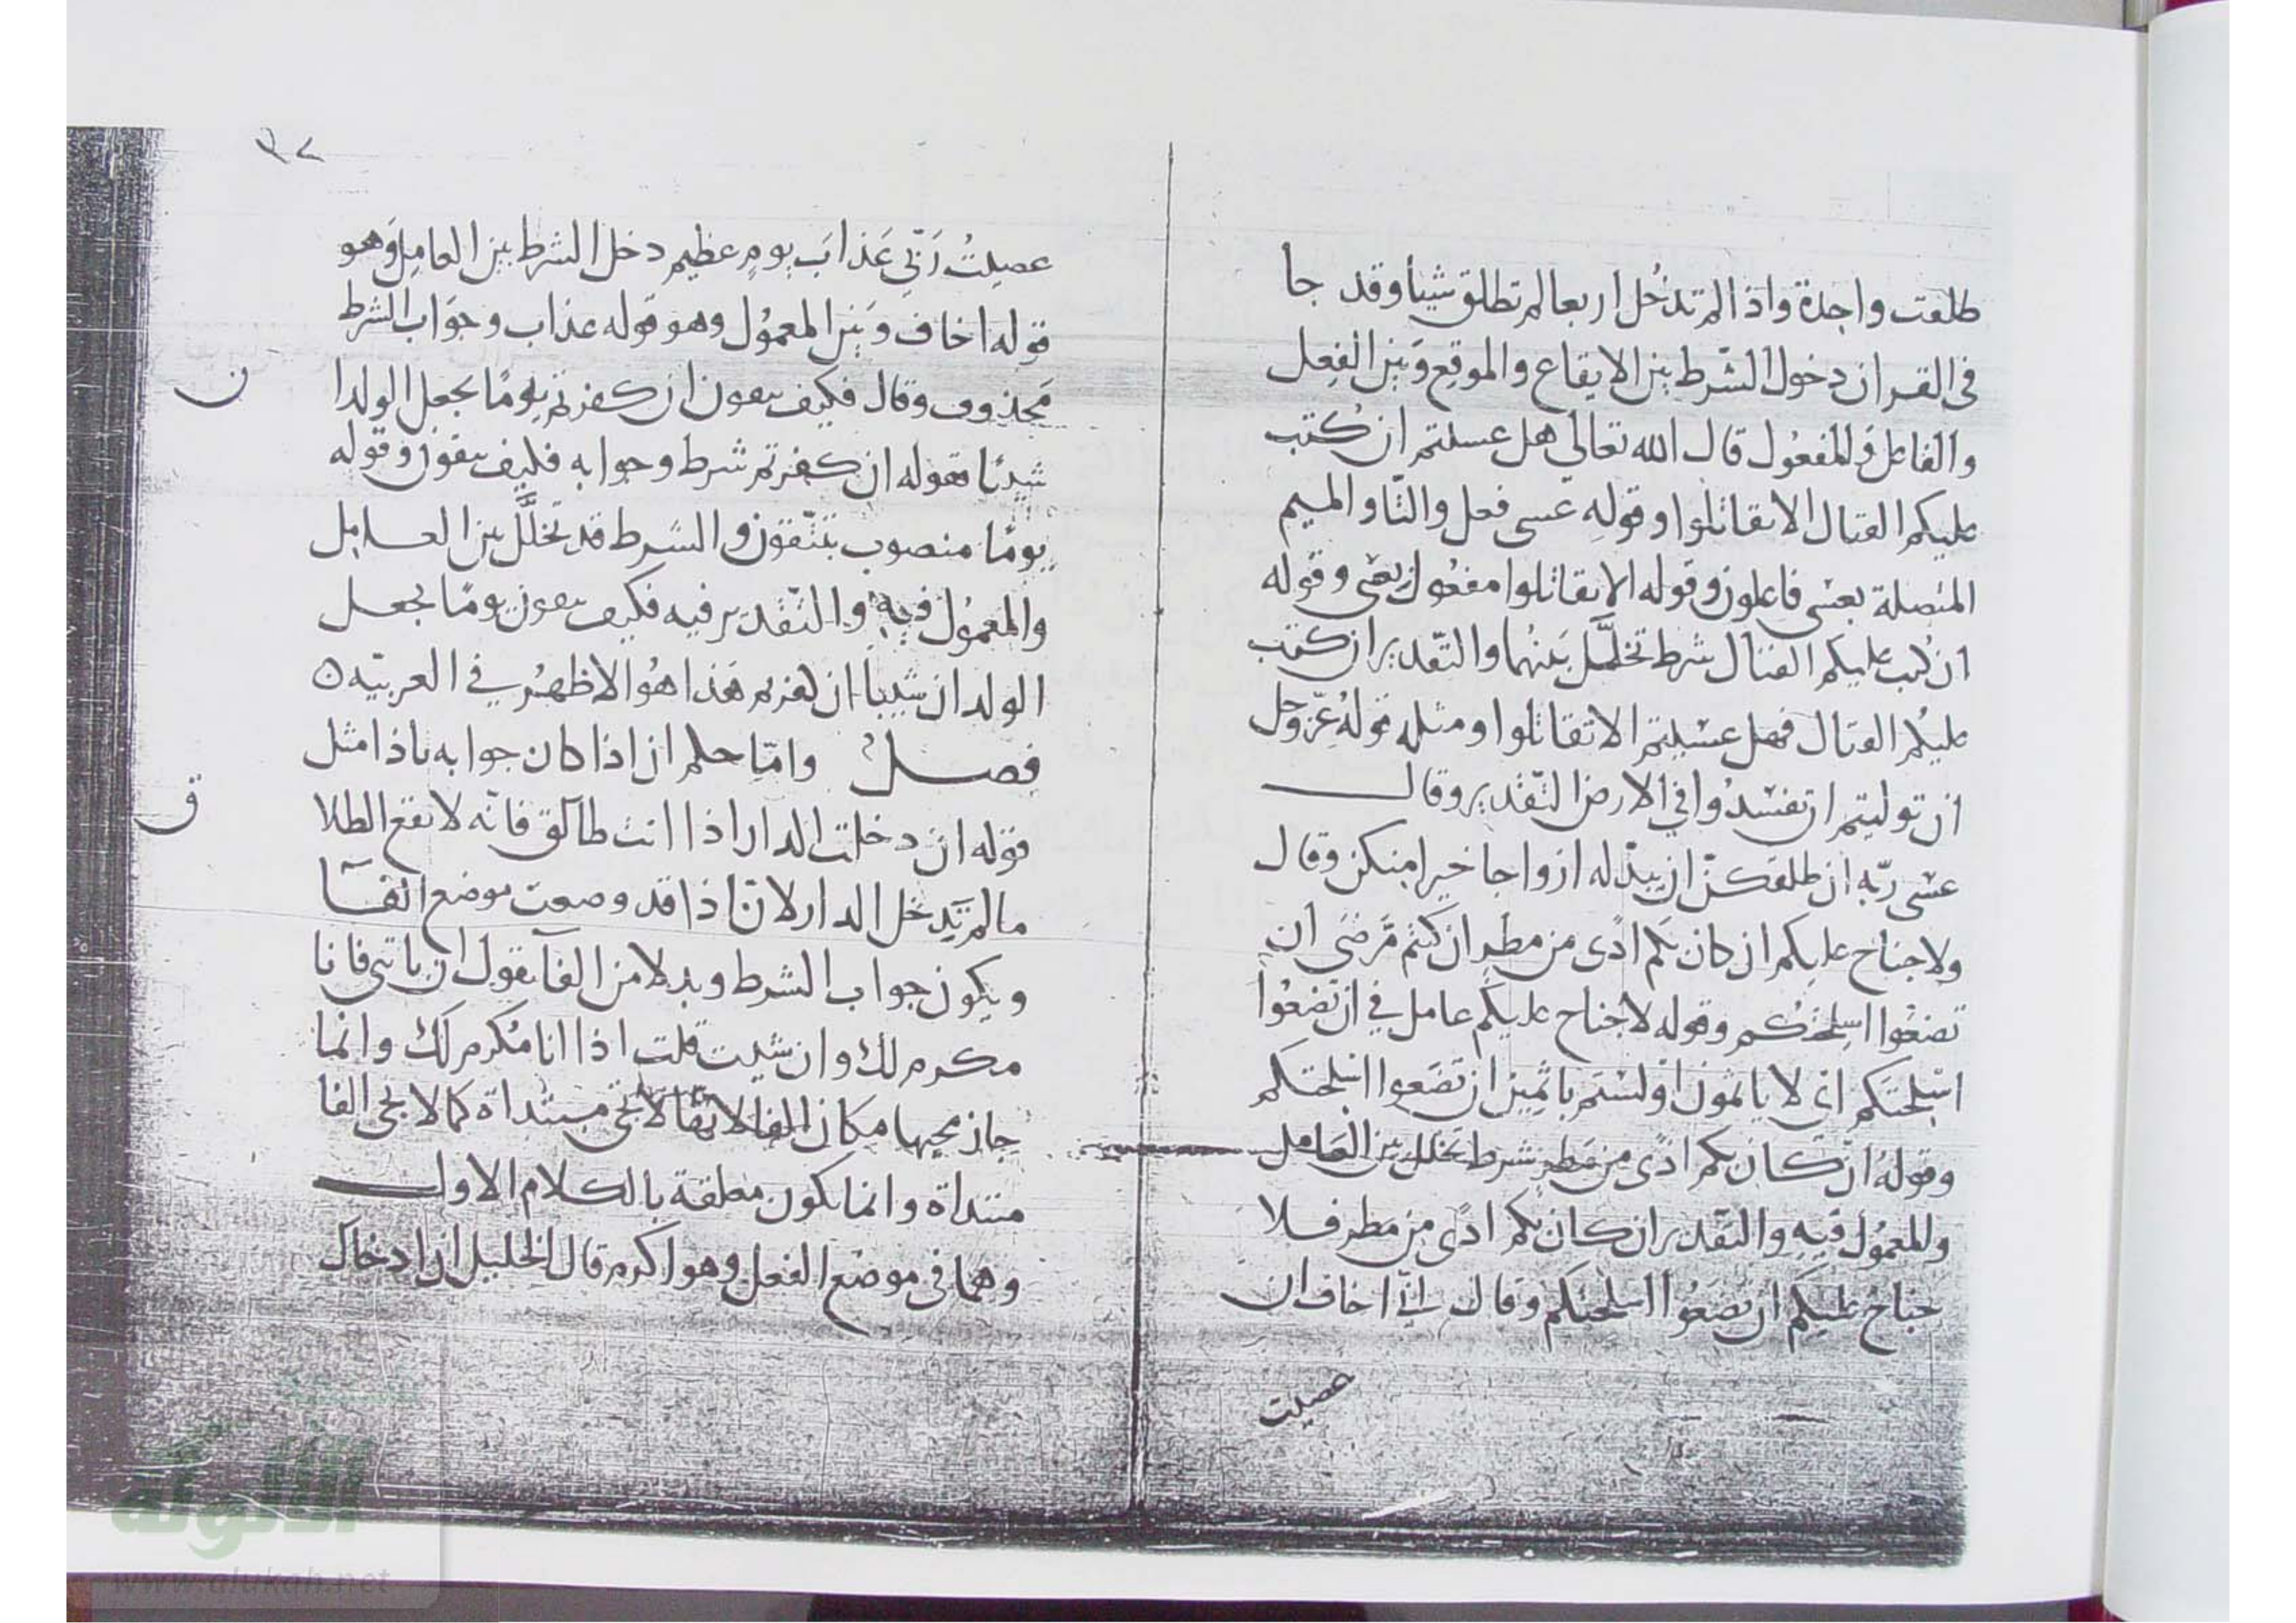 طلقت واحدة واذا لم تدخل اربعا لم تطلق شيئا وقد جا
فى القران دخول الشرط بين الايقاع والموقع وبين الفعل
والفاعل والمفعول قال الله تعالى هل عسيتم ان كتب
عليكم القتال الا تقاتلوا وقوله عسى فعل والتا والميم
المتصلة بعسى فاعلون وقوله الا تقاتلوا مفعول بعسى وقوله
ان كتب عليكم القتال شرط تخلل بينهما والتقدير ان كتب
عليكم القتال فهل عسيتم الا تقاتلوا ومثله قوله عز وجل
ان توليتم ان تفسدوا في الارض التقدير وقال
عسى ربه ان طلقكن ان يبدله ازواجا خيرا منكن وقال
ولا جناح عليكم ان كان بكم اذى من مطر ان كنتم مرضى ان
تضعوا اسلحتكم وقوله لا جناح عليكم عامل في ان تضعوا
اسلحتكم اى لا ياثمون او لستم باثمين ان تضعوا اسلحتكم
وقوله ان كان بكم اذى من مطر شرط تخلل بين العامل
والمعمول فيه والتقدير ان كان بكم اذى من مطر فلا
جناح عليكم ان تضعوا اسلحتكم وقال انى اخاف ان
عصيت
٣٧
عصيت ربى عذاب يوم عظيم دخل الشرط بين العامل وهو
قوله اخاف وبين المعمول وهو قوله عذاب وجواب الشرط
محذوف وقال فكيف تتقون ان كفرتم يوما يجعل الولدا
ن
شيبا فقوله ان كفرتم شرط وجوابه فكيف تتقون وقوله
يوما منصوب بتتقون والشرط قد تخلل بين العامل
والمعمول فيه والتقدير فيه فكيف تتقون يوما يجعل
الولدان شيبا ان كفرتم هذا هو الاظهر في العربية ه
فصل واما حكم ان اذا كان جوابه باذا مثل
قوله ان دخلت الدار اذا انت طالق فانه لا يقع الطلا
ق
مالم تدخل الدار لان اذا قد وضعت موضع الفا
ويكون جواب الشرط وبدلا من الفا تقول ان ياتنى فانا
مكرم لك وان شيت قلت اذا انا مكرم لك وانما
جاز مجيها مكان الفا لانها لا تجى مبتداة كما لا تجى الفا
مبتداة وانما تكون معلقة بالكلام الاول
وهما فى موضع الفعل وهو اكرم قال الخليل ان ادخال
الألوكة
www.alukah.net